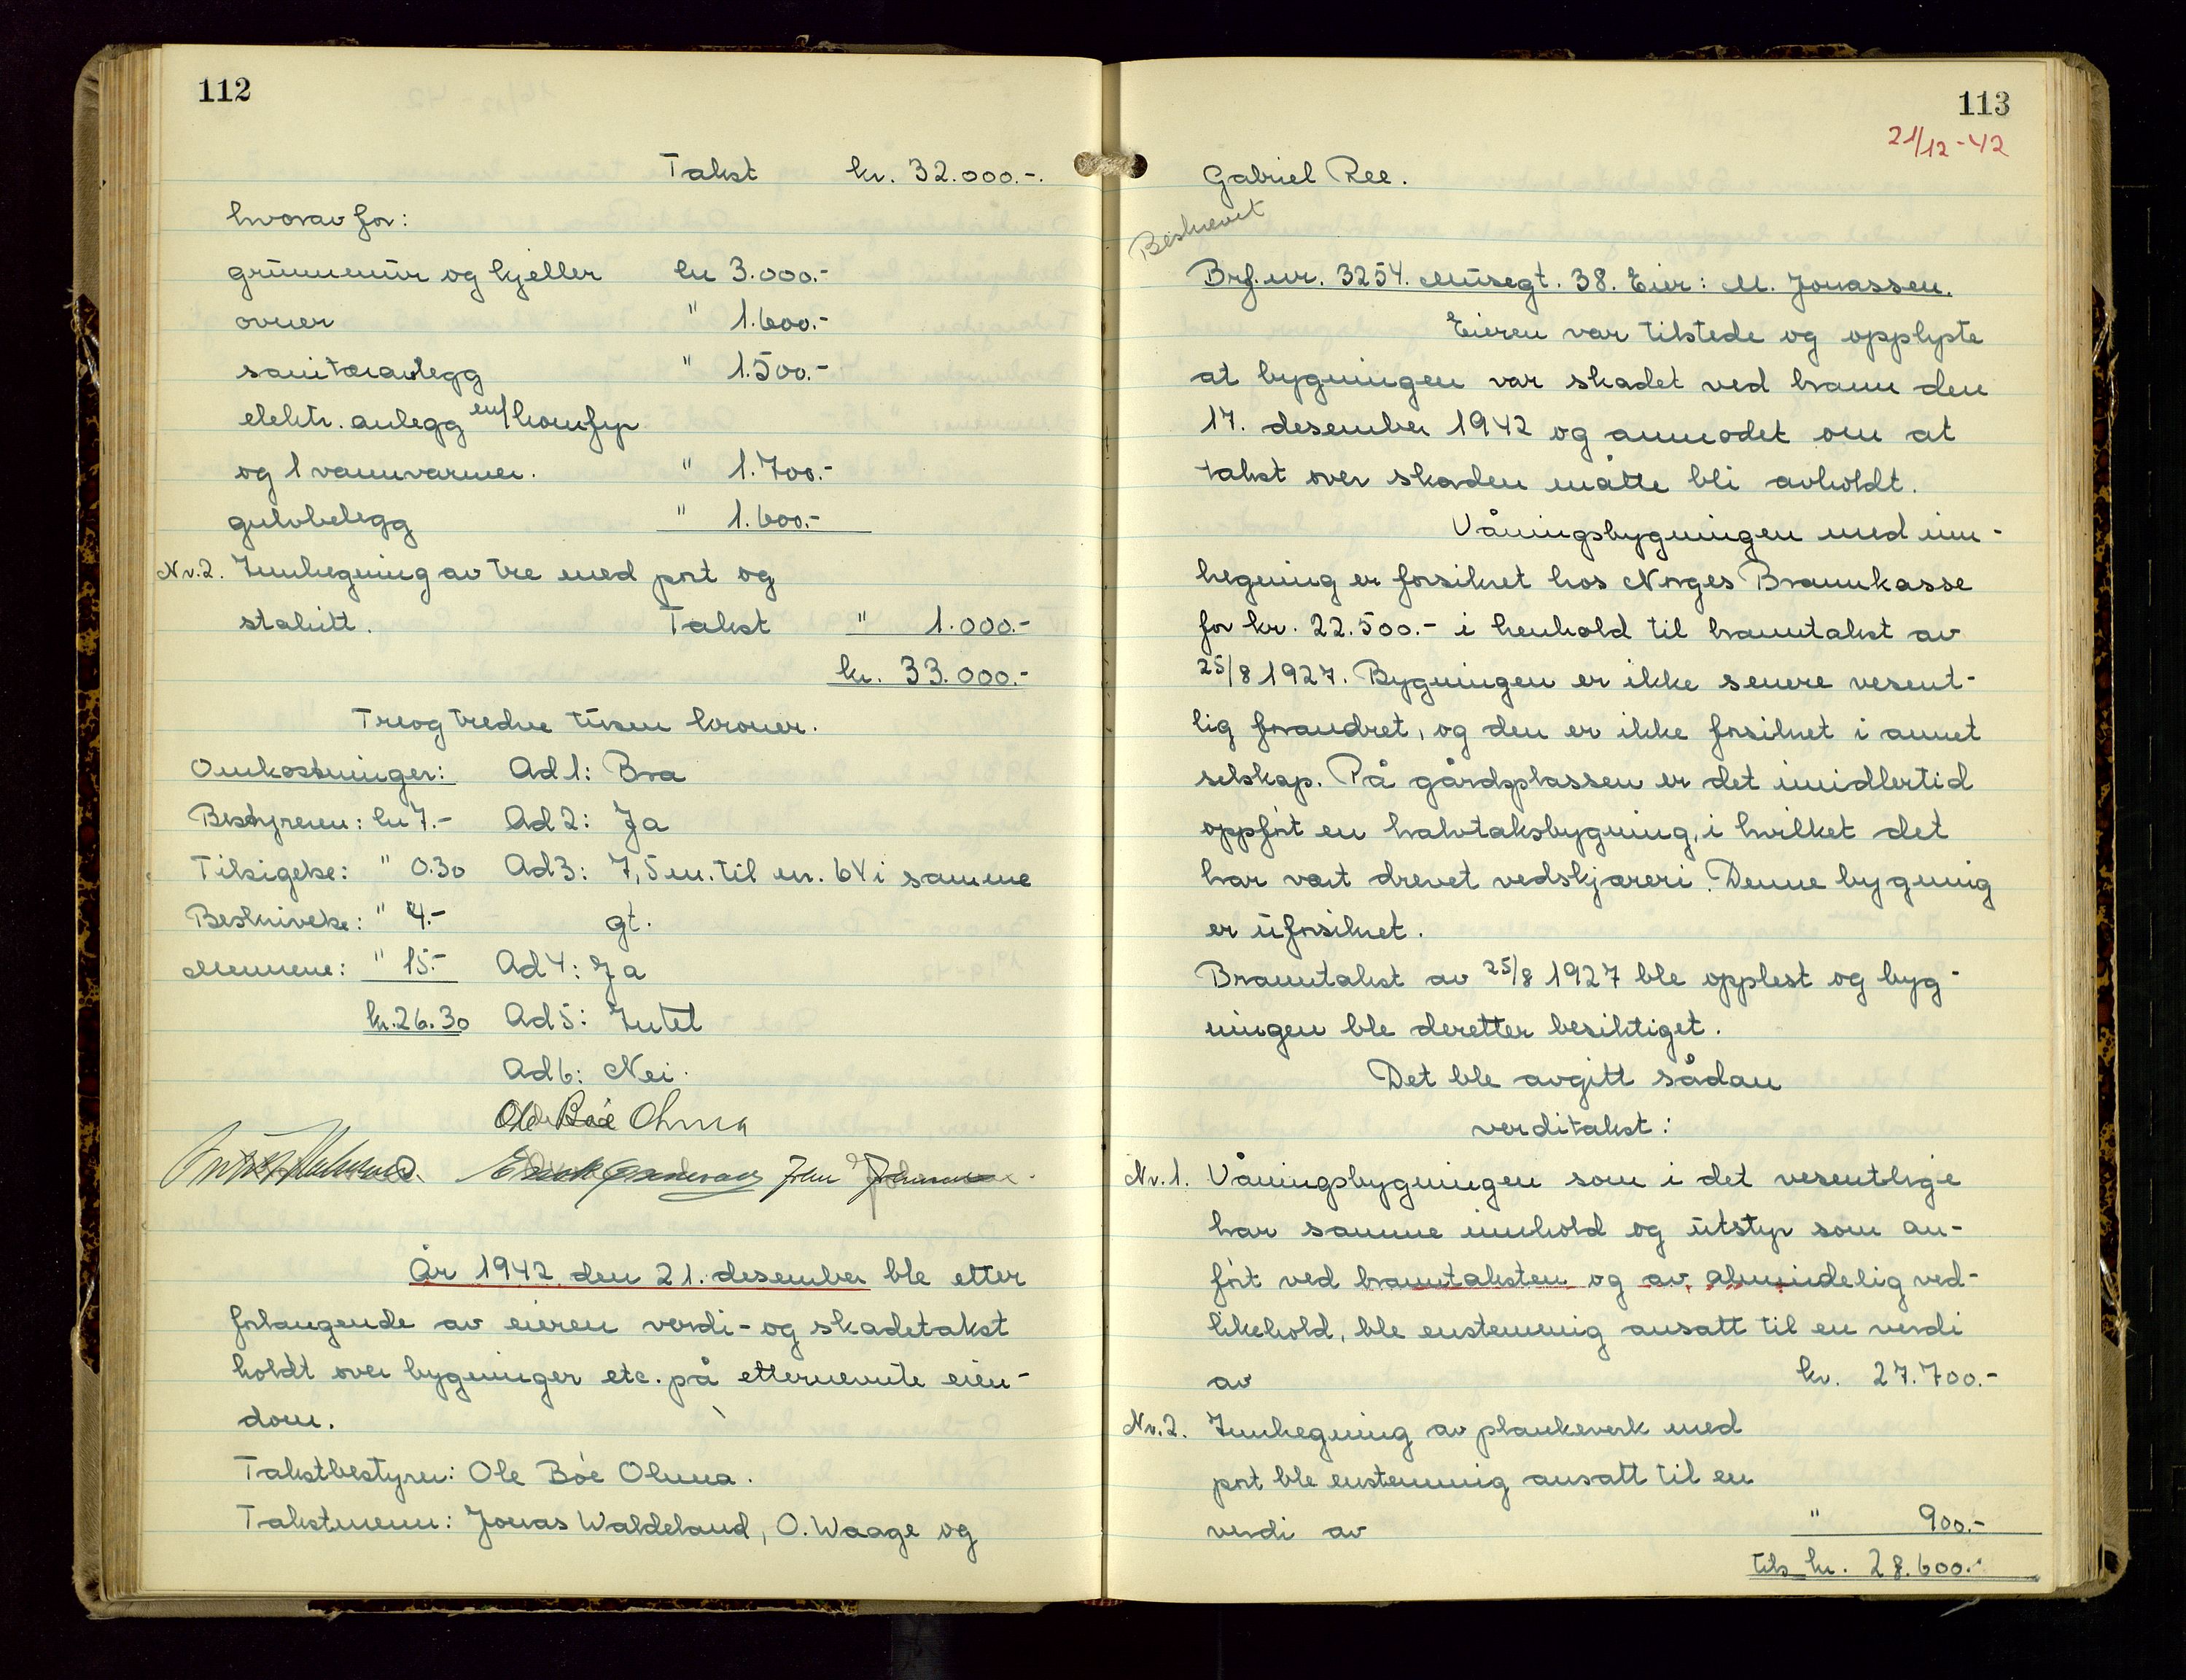 112
Takst kr. 32.000.-.
hvorav for:
grunnmur og kjeller kr 3.000.-
ovner " 1.600.-
sanitæranlegg " 1.500.-
elektr. anlegg m/komfyr
og 1 vannvarmer. " 1.700.-
gulvbelegg " 1.600.-
Nr. 2. Innhegning av tre med port og
stakitt. Takst " 1.000.-
kr. 33.000.-
Treogtredve tusen kroner.
Omkostninger: Ad 1: Bra
Bestyreren: kr 7.- Ad 2: Ja
Tilsigelse: " 0.30 Ad 3: 7,5 m. til nr. 64 i samme
Beskrivelse: " 4.- gt.
Mennene: " 15.- Ad 4: Ja
kr. 26.30 Ad 5: Intet
Ad 6: Nei.
Ole Bøe Olima
År 1942 den 21. desember ble etter
forlangende av eieren verdi- og skadetakst
holdt over bygninger etc. på etternevnte eien-
dom.
Takstbestyrer: Ole Bøe Olima.
Takstmenn: Jonas Waldeland, O. Waage og
113
21/12-42
Gabriel Ree.
Beskrevet
Brf. nr. 3254. Musegt. 38. Eier: M. Jonassen.
Eieren var tilstede og opplyste
at bygningen var skadet ved brann den
17. desember 1942 og anmodet om at
takst over skaden måtte bli avholdt.
Våningsbygningen med inn-
hegning er forsikret hos Norges Brannkasse
for kr. 22.500.- i henhold til branntakst av
25/8 1927. Bygningen er ikke senere vesent-
lig forandret, og den er ikke forsikret i annet
selskap. På gårdsplassen er det imidlertid
oppført en halvtaksbygning, i hvilket det
har vært drevet vedskjæreri. Denne bygning
er uforsikret.
Branntakst av 25/8 1927 ble opplest og byg-
ningen ble deretter besiktiget.
Det ble avgitt sådan
verditakst:
Nr. 1. Våningsbygningen som i det vesentlige
har samme innhold og utstyr som an-
ført ved branntaksten og av almindelig ved-
likehold, ble enstemmig ansatt til en verdi
av kr. 27.700.-
Nr. 2. Innhegning av plankeverk med
port ble enstemmig ansatt til en
verdi av " 900.-
tils kr. 28.600.-